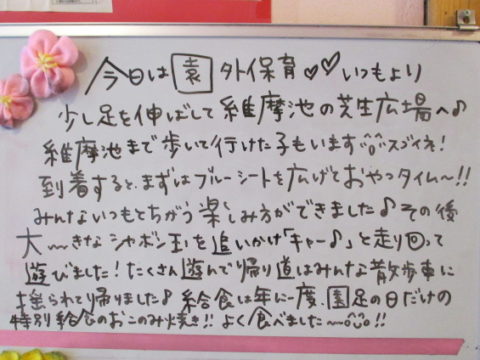 今日は園外保育♡♡いつもより
少し足を伸ばして維摩池の芝生広場へ♪
維摩池まで歩いて行けた子もいます^o^スゴイネ!
到着すると、まずはブルーシートを広げておやつタイム〜!!
みんないつもとちがう楽しみ方ができました♪その後
大〜きなシャボン玉を追いかけ「キャー♪」と走り回って
遊びました!たくさん遊んで帰り道はみんな散歩車に
揺られて帰りました♪給食は年に一度、園足の日だけの
特別給食のおこのみ焼き!!よく食べました〜^o^!!